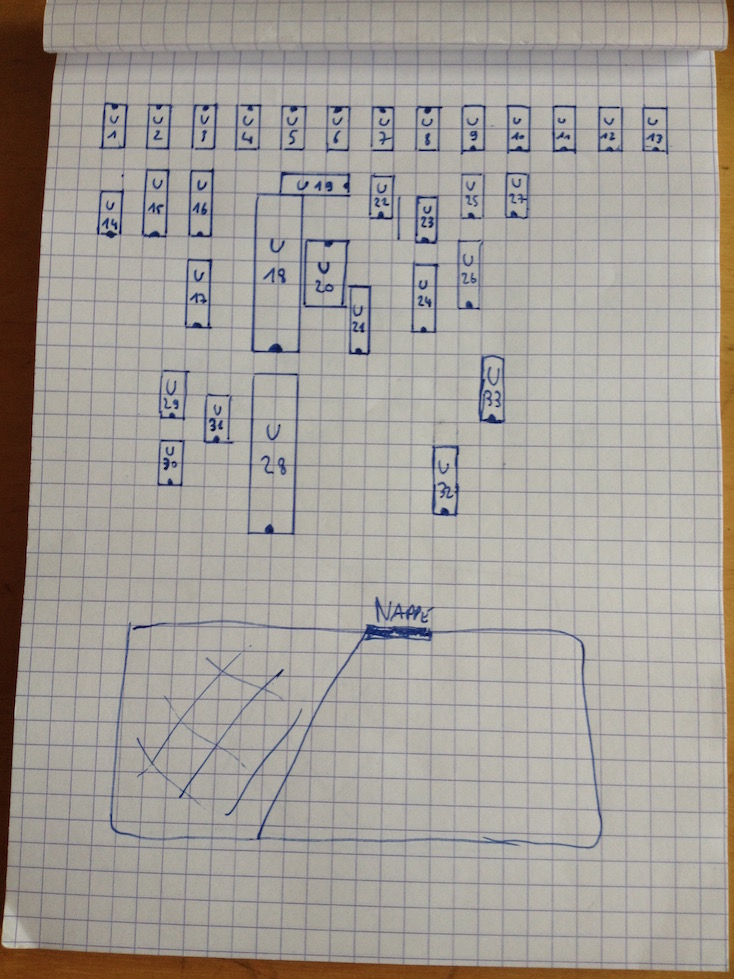 U 1 U 2 U 3 U 4 U 5 U 6 U 7 U 8 U 9 U 10 U 11 U 12 U 13
U 14 U 15 U 16 U 19 U 22 U 23 U 25 U 27
U 17 U 18 U 20 U 21 U 24 U 26
U 29 U 31 U 28 U 33
U 30 U 32
NAPPE